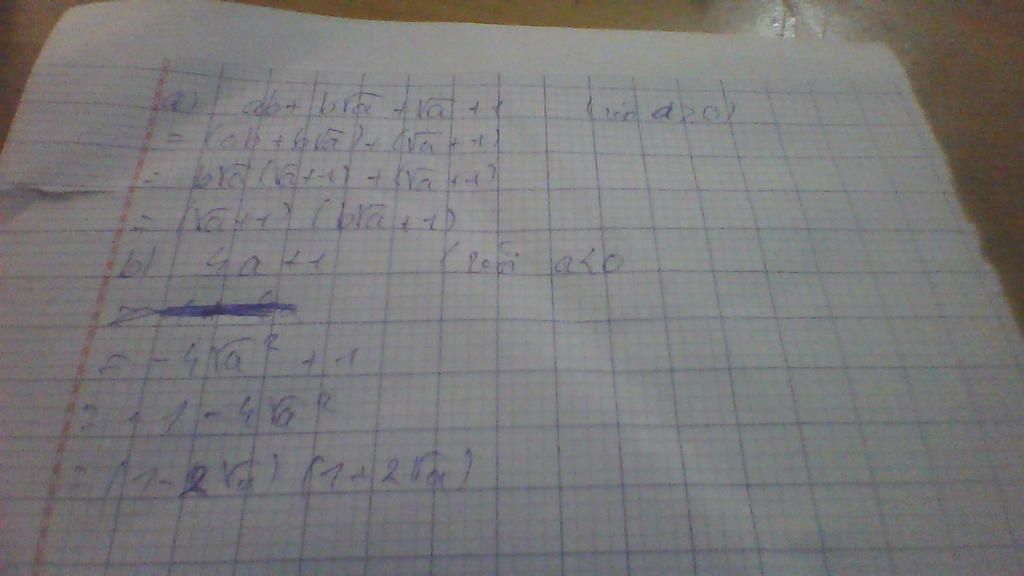 a) ab + b√a + √a + 1 ( a > 0)
= (ab + b√a) + (√a + 1)
= b√a (√a + 1) + (√a + 1)
= (√a + 1) (b√a + 1)
b) 4a + 1 ( a < 0
= - 4√a² + 1
= + 1 - 4√a²
= (1 - 2√a) (1 + 2√a)